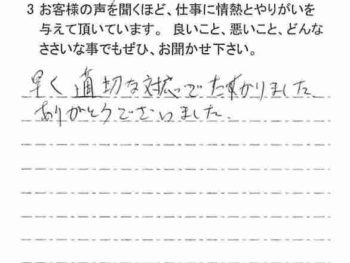 3 お客様の声を聞くほど、仕事に情熱とやりがいを
与えて頂いています。良いこと、悪いこと、どんな
ささいな事でもぜひ、お聞かせ下さい。
早く適切な対応でたすかりました。
ありがとうございました。